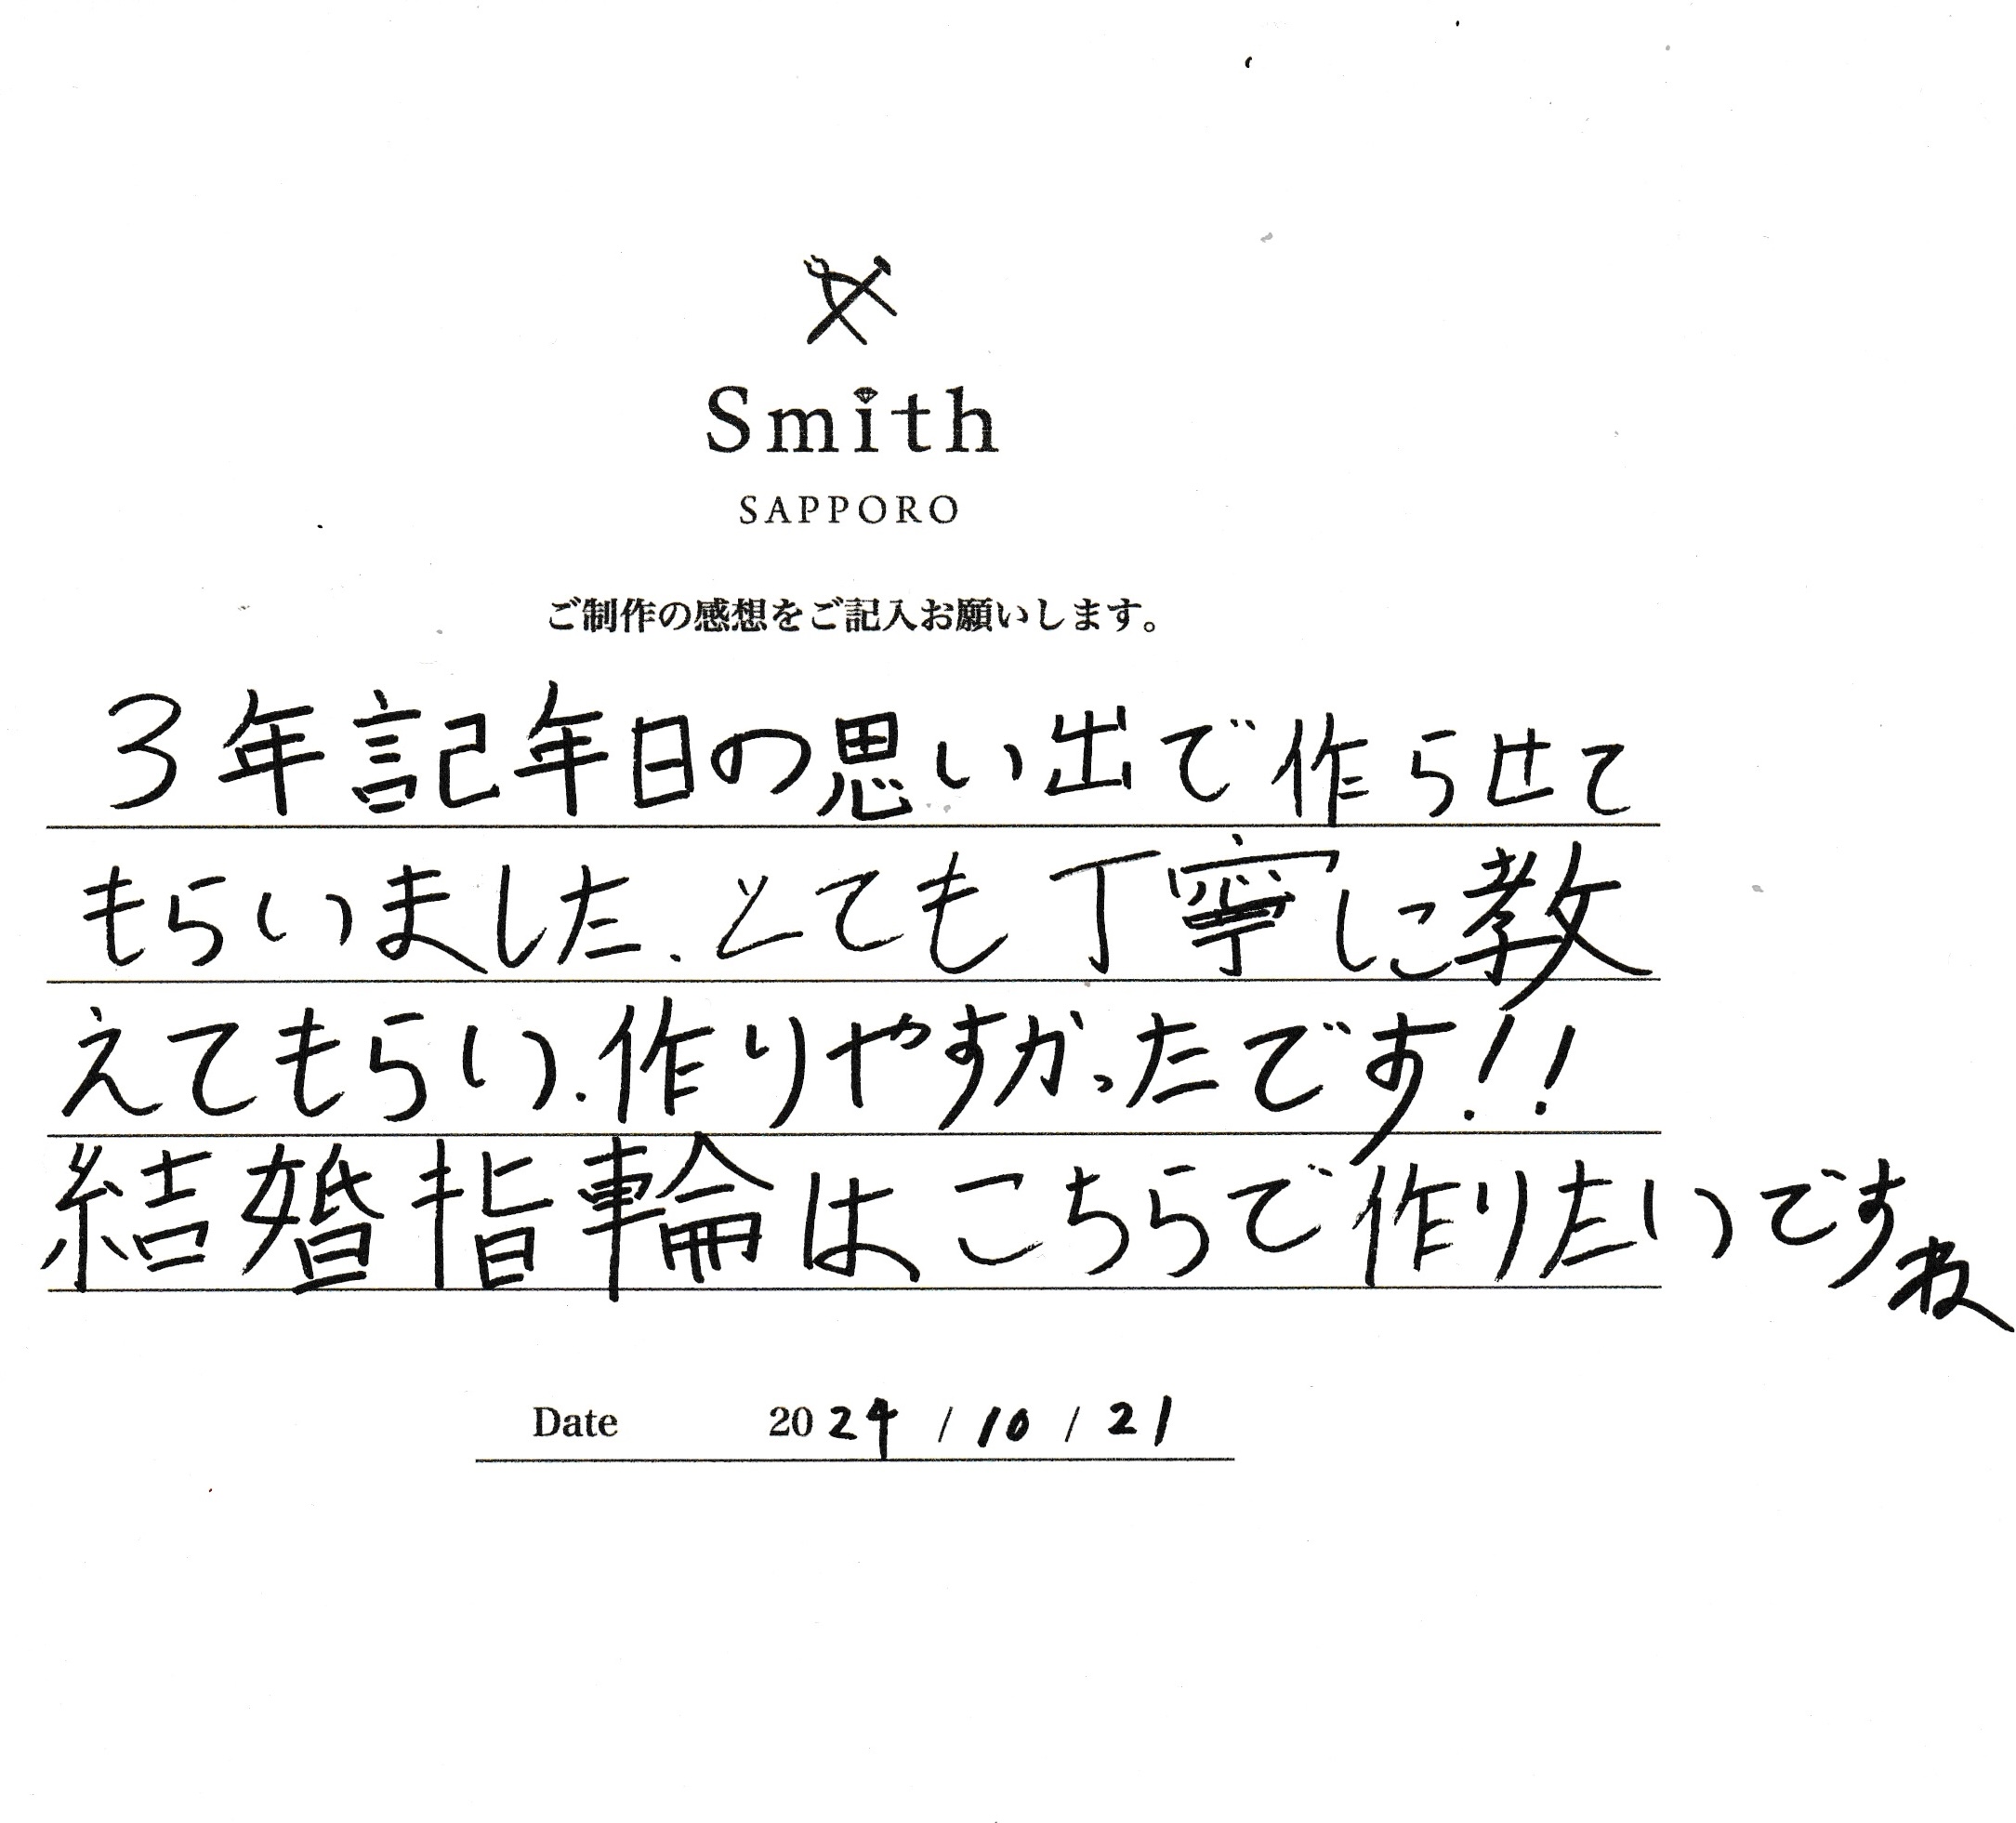 Smith
SAPPORO
ご制作の感想をご記入お願いします。
3年記年日の思い出で作らせて
もらいました.とても丁寧に教
えてもらい.作りやすかったです!!
結婚指輪はこちらで作りたいですね
Date 2024 / 10 / 21